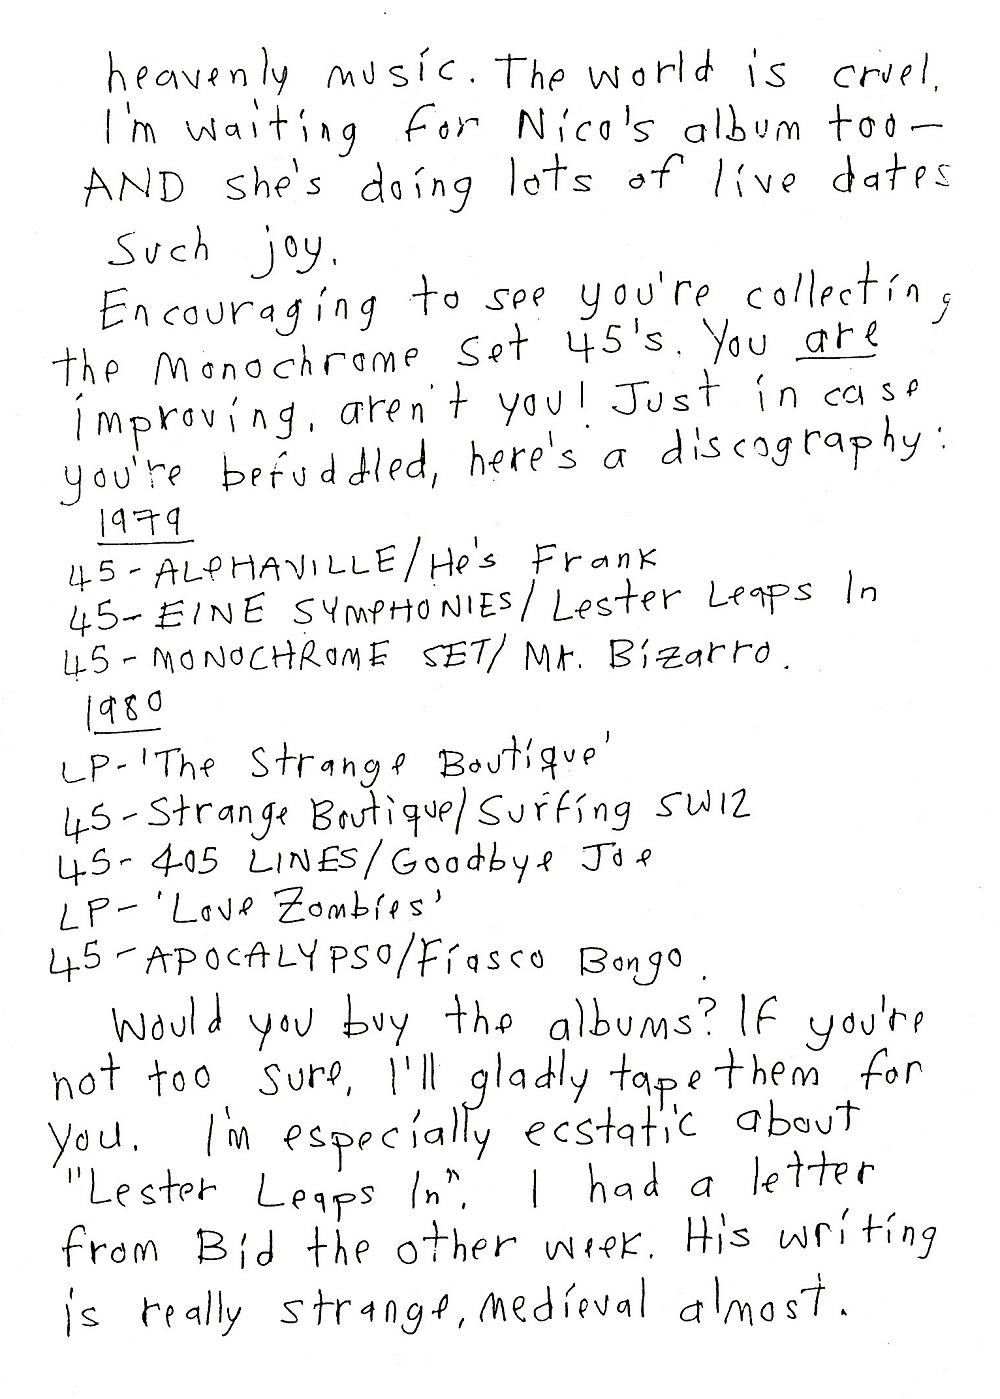 heavenly music. The world is cruel.
I'm waiting for Nico's album too—
AND she's doing lots of live dates
Such joy.
Encouraging to see you're collecting
the Monochrome Set 45's. You are
improving, aren't you! Just in case
you're befuddled, here's a discography:
1979
45-ALPHAVILLE/He's Frank
45-EINE SYMPHONIES/Lester Leaps In
45-MONOCHROME SET/Mr. Bizarro.
1980
LP-'The Strange Boutique'
45-Strange Boutique/Surfing SW12
45-405 LINES/Goodbye Joe
LP-'Love Zombies'
45-APOCALYPSO/Fiasco Bongo.
Would you buy the albums? If you're
not too sure, I'll gladly tape them for
you. I'm especially ecstatic about
"Lester Leaps In". I had a letter
from Bid the other week. His writing
is really strange, medieval almost.